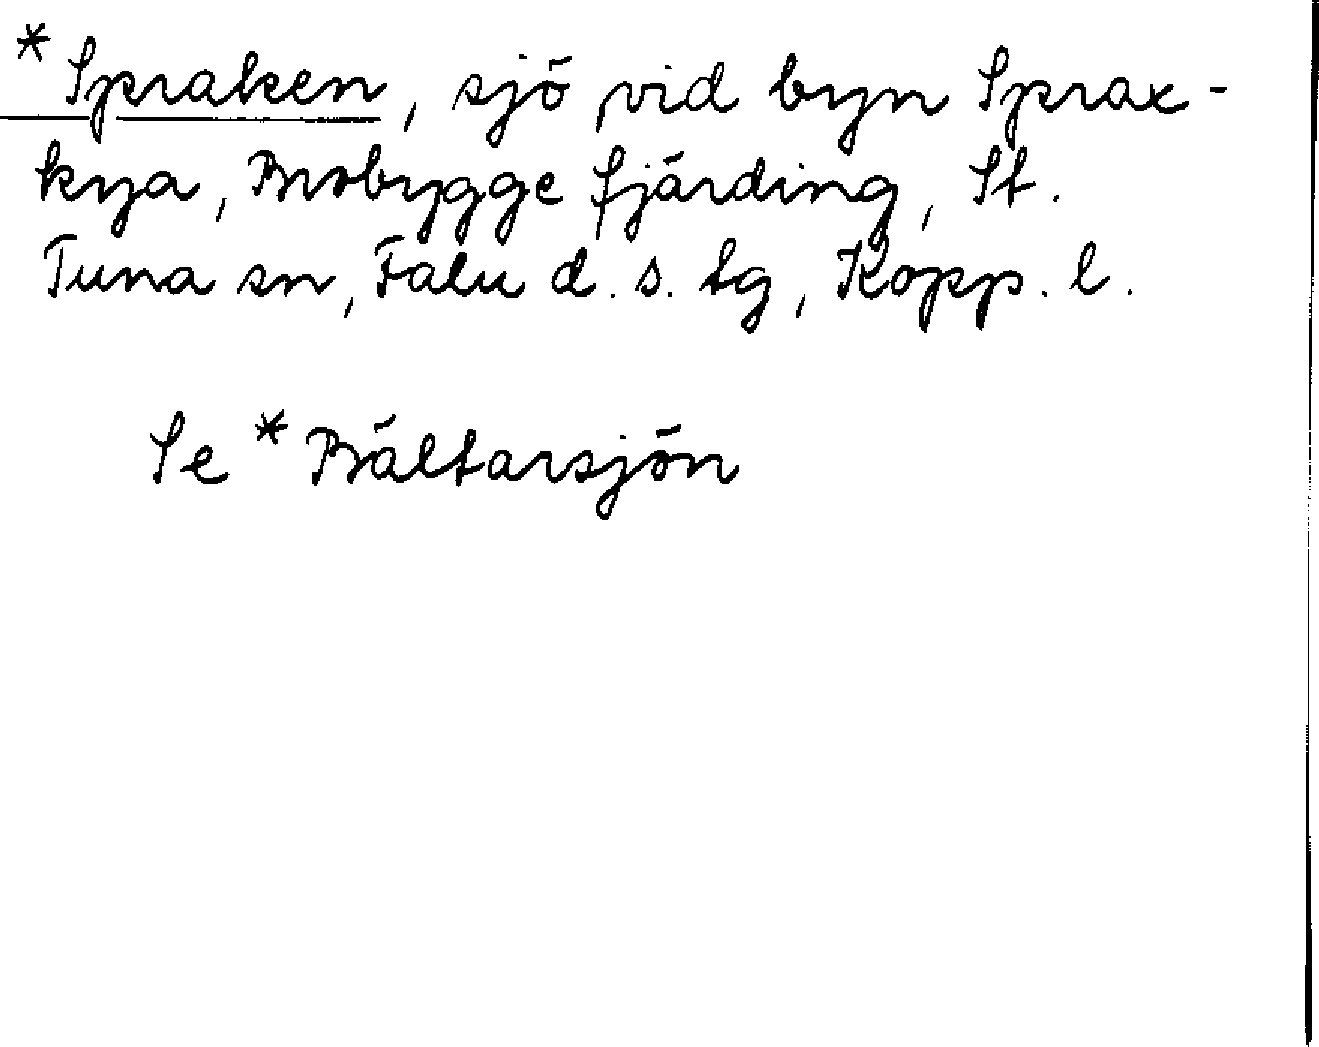 *Spraken, sjö vid byn Sprax-
kya, Brobygge fjärding, St.
Tuna sn, Falu d. s. tg, Kopp. l.
Se *Bältarsjön